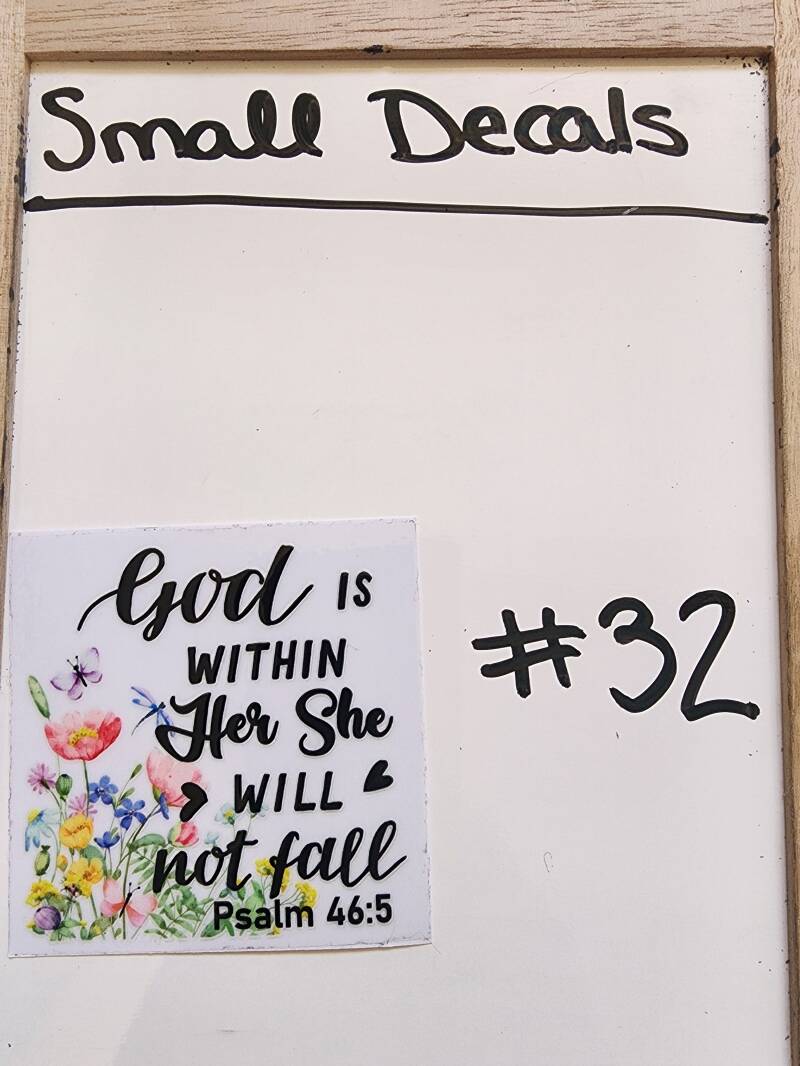 Small Decals
God IS
WITHIN
Her She
WILL
not fall
Psalm 46:5
#32